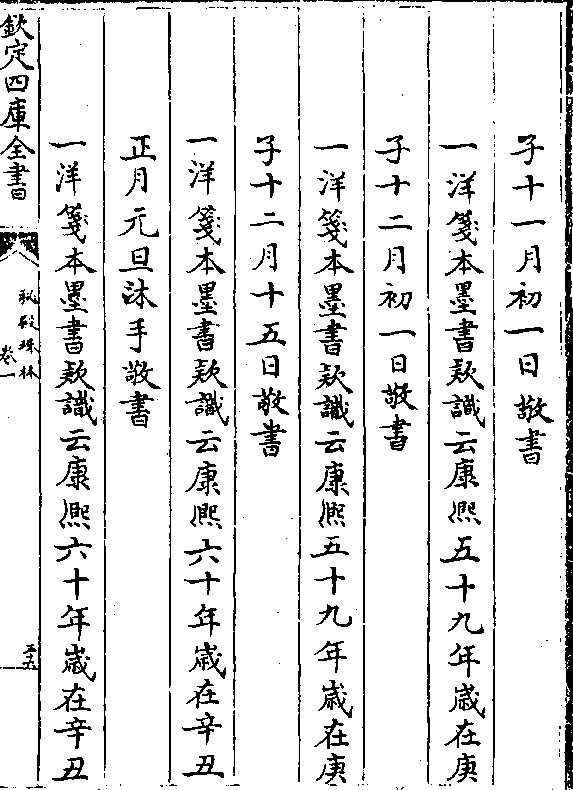 子十一月初一日敬書
一洋箋本墨書款識云康熙五十九年歲在庚
子十二月初一日敬書
一洋箋本墨書款識云康熙五十九年歲在庚
子十二月十五日敬書
一洋箋本墨書款識云康熙六十年歲在辛丑
正月元旦沐手敬書
一洋箋本墨書款識云康熙六十年歲在辛丑
欽定四庫全書
秘殿珠林
卷一